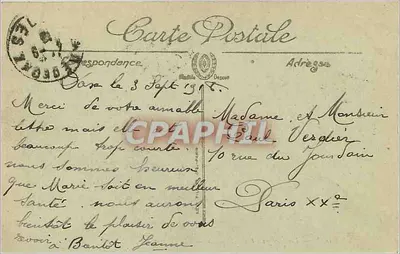 Carte Postale
Correspondance
Adresse
le 3 Sept
Merci de votre aimable
lettre mais elle
beaucoup trop courte.
nous sommes heureux
que Marie soit en meilleur
santé. nous aurons
bientôt le plaisir de vous
revoir
à Bientôt Jeanne
Madame et Monsieur
Paul Verdier
10 rue du Jourdain
Paris XXe
CPAPHIL